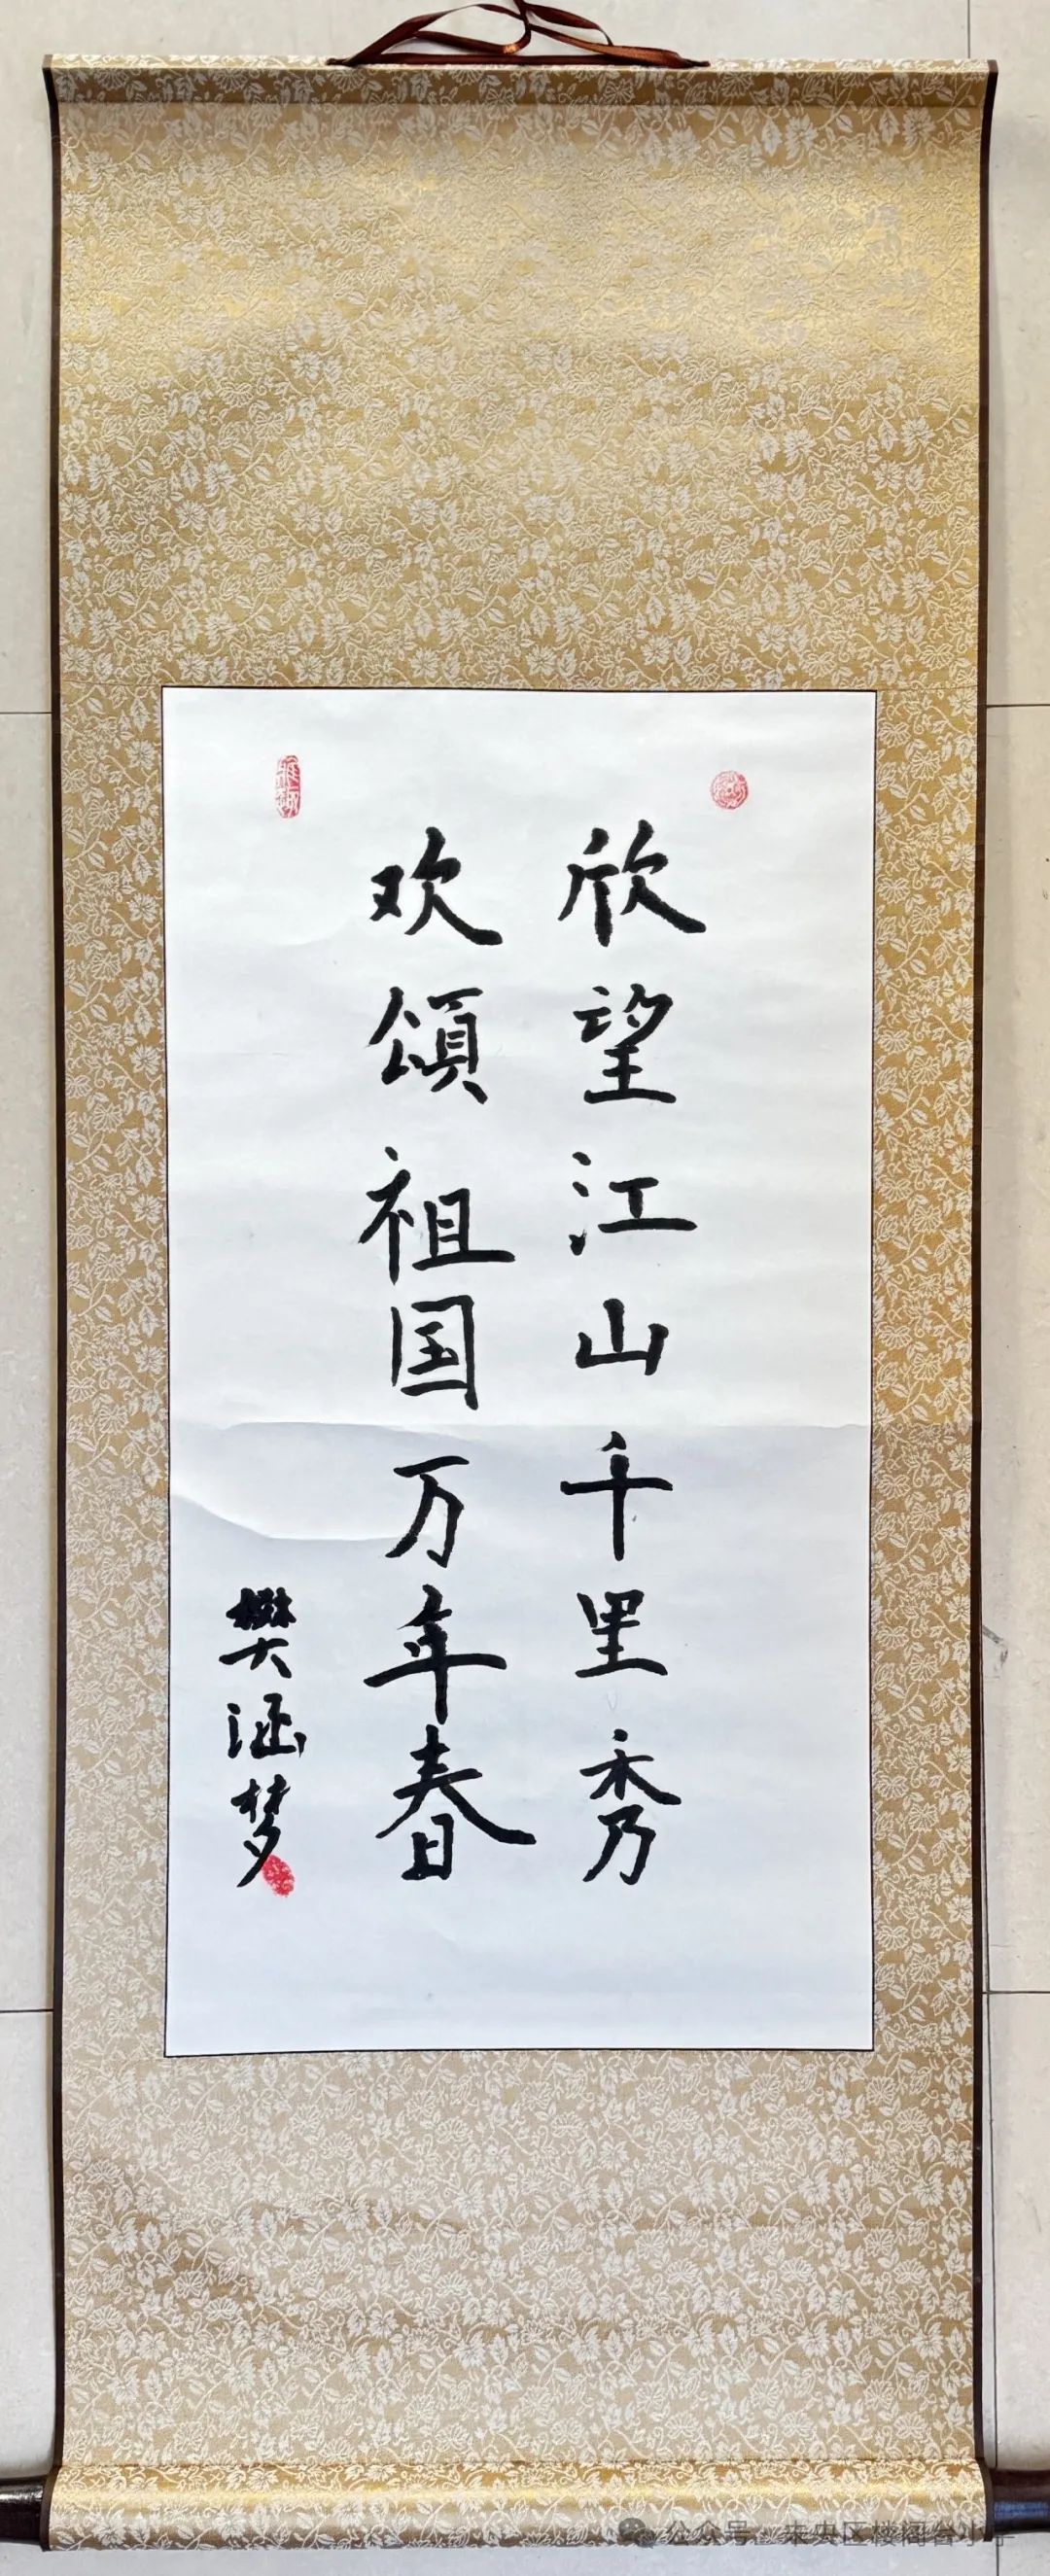 欣望江山千里秀
欢頌祖国万年春
樊涵梦
公众号·未央区楼阁台小学